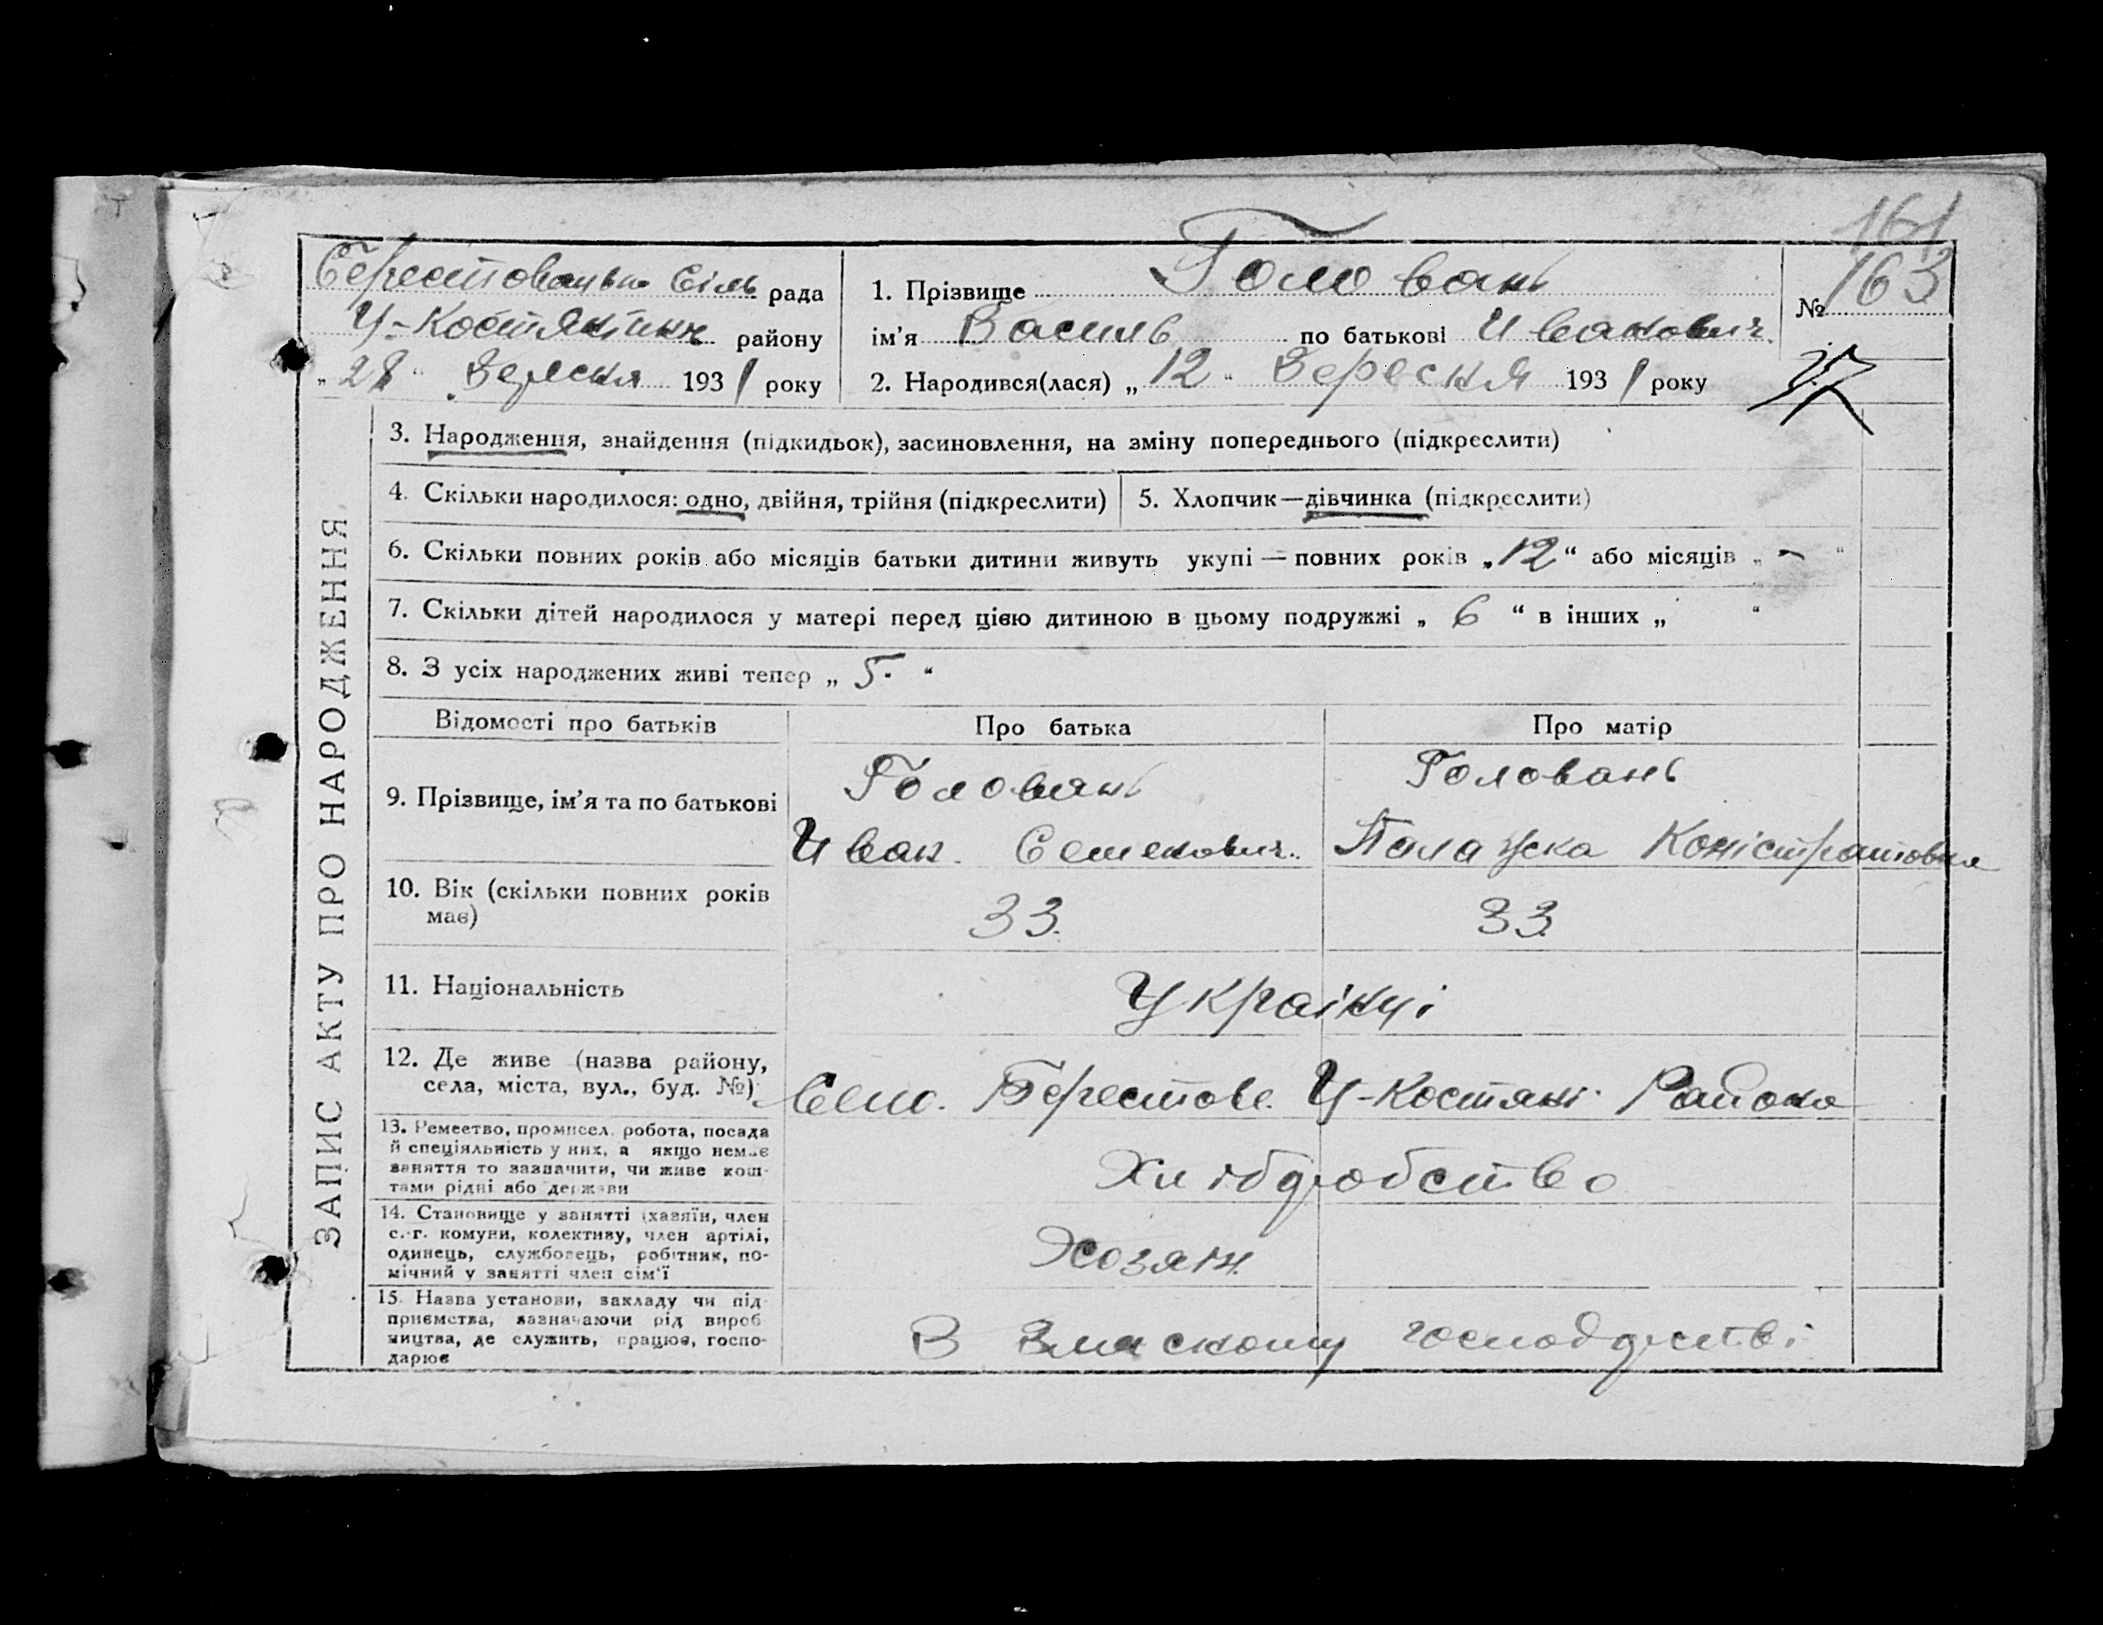 161
Берестованська Сіль рада
Ц-Костянтинч району
„28“ Вересня 1931 року
1. Прізвище Головань
ім’я Василь по батькові Иванович.
2. Народився(лася) „12“ Вересня 1931 року
№ 163
37
ЗАПИС АКТУ ПРО НАРОДЖЕННЯ
3. Народження, знайдення (підкидьок), засиновлення, на зміну попереднього (підкреслити)
4. Скільки народилося: одно, двійня, трійня (підкреслити)
5. Хлопчик—дівчинка (підкреслити)
6. Скільки повних років або місяців батьки дитини живуть укупі — повних років „12“ або місяців „-“
7. Скільки дітей народилося у матері перед цією дитиною в цьому подружжі „6“ в інших „ “
8. З усіх народжених живі тепер „5.“
Відомості про батьків
Про батька
Про матір
9. Прізвище, ім’я та по батькові
Головань
Иван. Семенович.
Головань
Палажка
10. Вік (скільки повних років
має)
33.
33
11. Національність
Українці
12. Де живе (назва району,
села, міста, вул., буд. №)
Село. Берестове. Ц-Костянт. Района
13. Ремество, промисел, робота, посада
й спеціяльність у них, а якщо немає
заняття то зазначити, чи живе кош-
тами рідні або держави
Хліборобство
14. Становище у занятті (хазяїн, член
с.-г. комуни, колективу, член артілі,
одинець, службовець, робітник, по-
мічний у занятті член сім’ї
Хозяін.
15. Назва установи, закладу чи під-
приємства, зазначаючи рід вироб
ництва, де служить, працює, госпо-
дарює
В господрстві